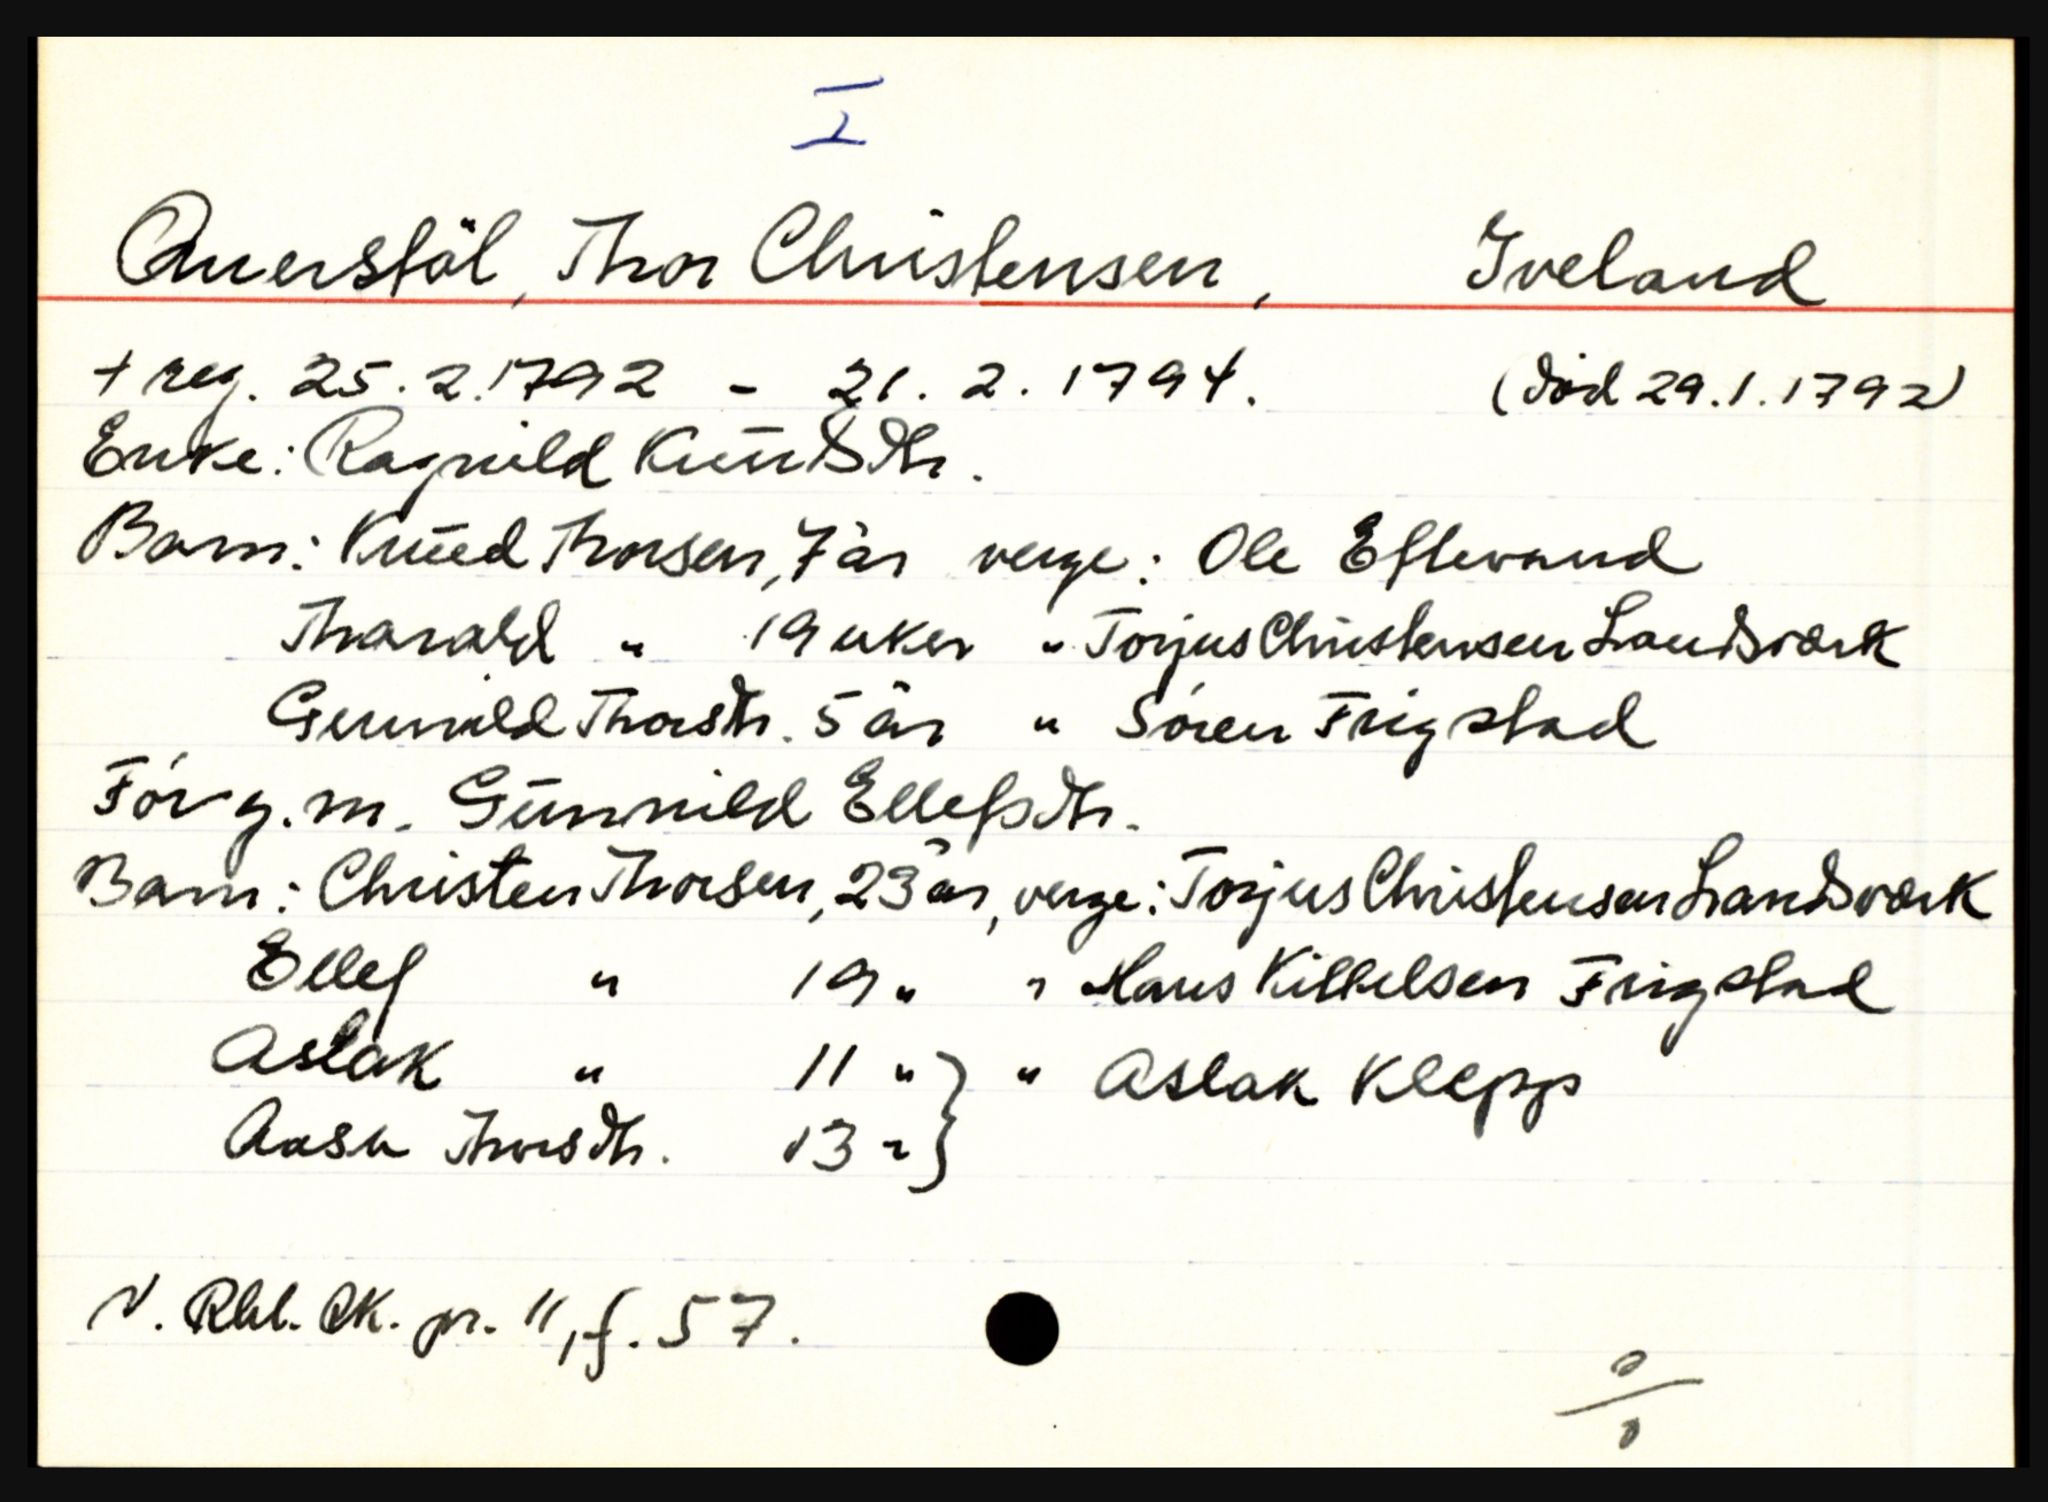 I
Querstöl, Thor Christensen, Iveland
+ reg. 25.2.1792 - 21.2.1794. (död 29.1.1792)
Enke: Ragnild Knüdsdtr.
Barn: Knüed Thorsen, 7 år verge: Ole Eftevand
Tharald " 19 uker " Torjus Christensen Landsværk
Gunnild Thorsdtr. 5 år " Sören Frigstad
För g.m. Günnild Ellefsdtr.
Barn: Christen Thorsen, 23 år, verge: Torjus Christensen Landsværk
Ellef " 19 " " Hans Kittelsen Frigstad
Aslak " 11 " } " Aslak Klepp
Aasu Thorsdtr. 13 " }
N. Rbl. Sk. pr. 11, f. 57.